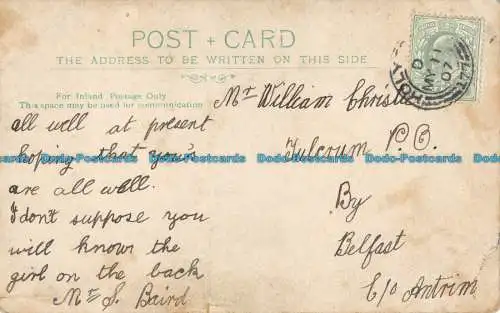 POST + CARD
THE ADDRESS TO BE WRITTEN ON THIS SIDE
For Inland Postage Only
This space may be used for communication
all well at present
hoping that you's
are all well.
I don't suppose you
will know the
girl on the back
Mrs S. Baird
Mr William Christie
P.O.
By
Belfast
C/o Antrim
HOLY
MY 11
07
Dodo-Postcards Dodo-Postcards Dodo-Postcards Dodo-Postcards